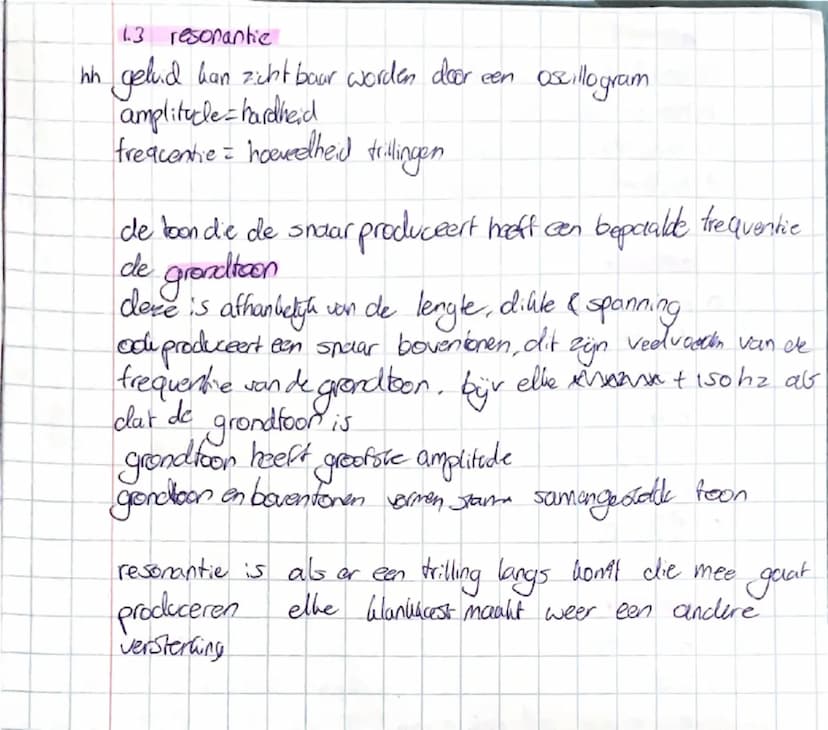 1.3 resonantie
hh geluid kan zichtbaar worden door een oscillogram
amplitude = hardheid
freqcentie = hoeveelheid trillingen
de toon die de snaar produceert heeft een bepaalde frequentie
de grondtoon
deze is afhankelijk van de lengte, dikte & spanning
ook produceert een snaar boventonen, dit zijn veelvouden van de
frequentie van de grondtoon. bijv elke + 150 hz als
dat de grondtoon is
grondtoon heeft grootste amplitude
grondtoon en boventonen vormen samengestelde toon
resonantie is als er een trilling langs komt die mee gaat
produceren elke klankkast maakt weer een andere
versterking